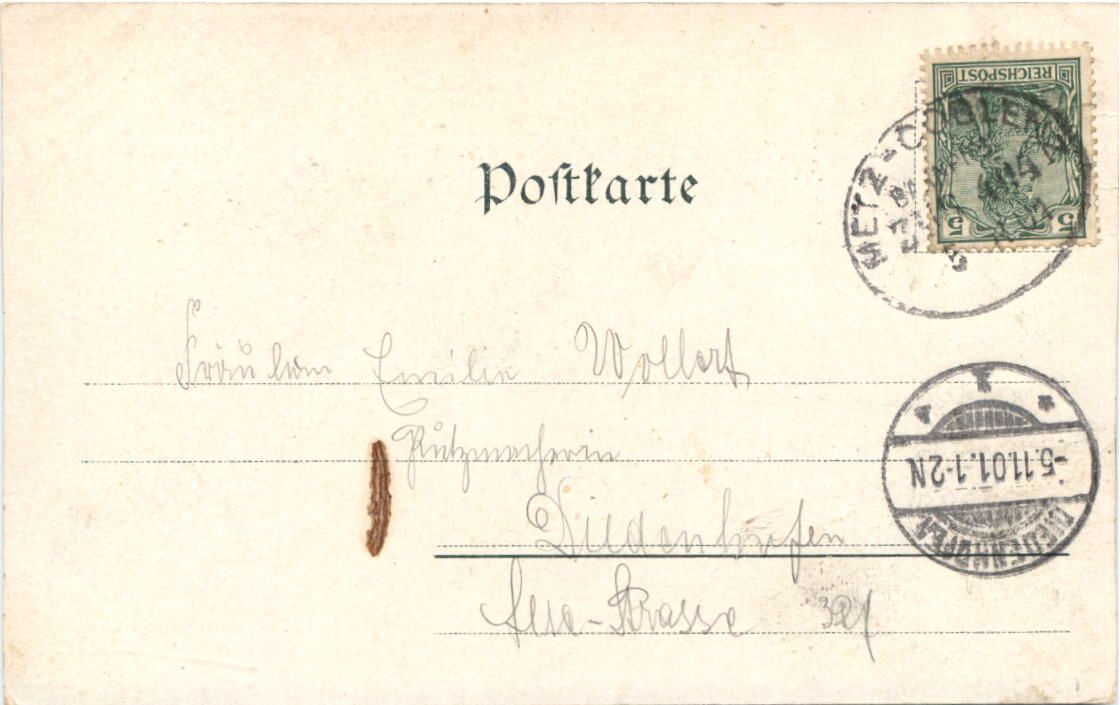 REICHSPOST
5 5
METZ-COBLENZ
Postkarte
Fräulein Emilie Wollert
Putzmacherin
Diedenhofen
-Strasse 32
-5.11.01.1-2N
DIEDENHOFEN